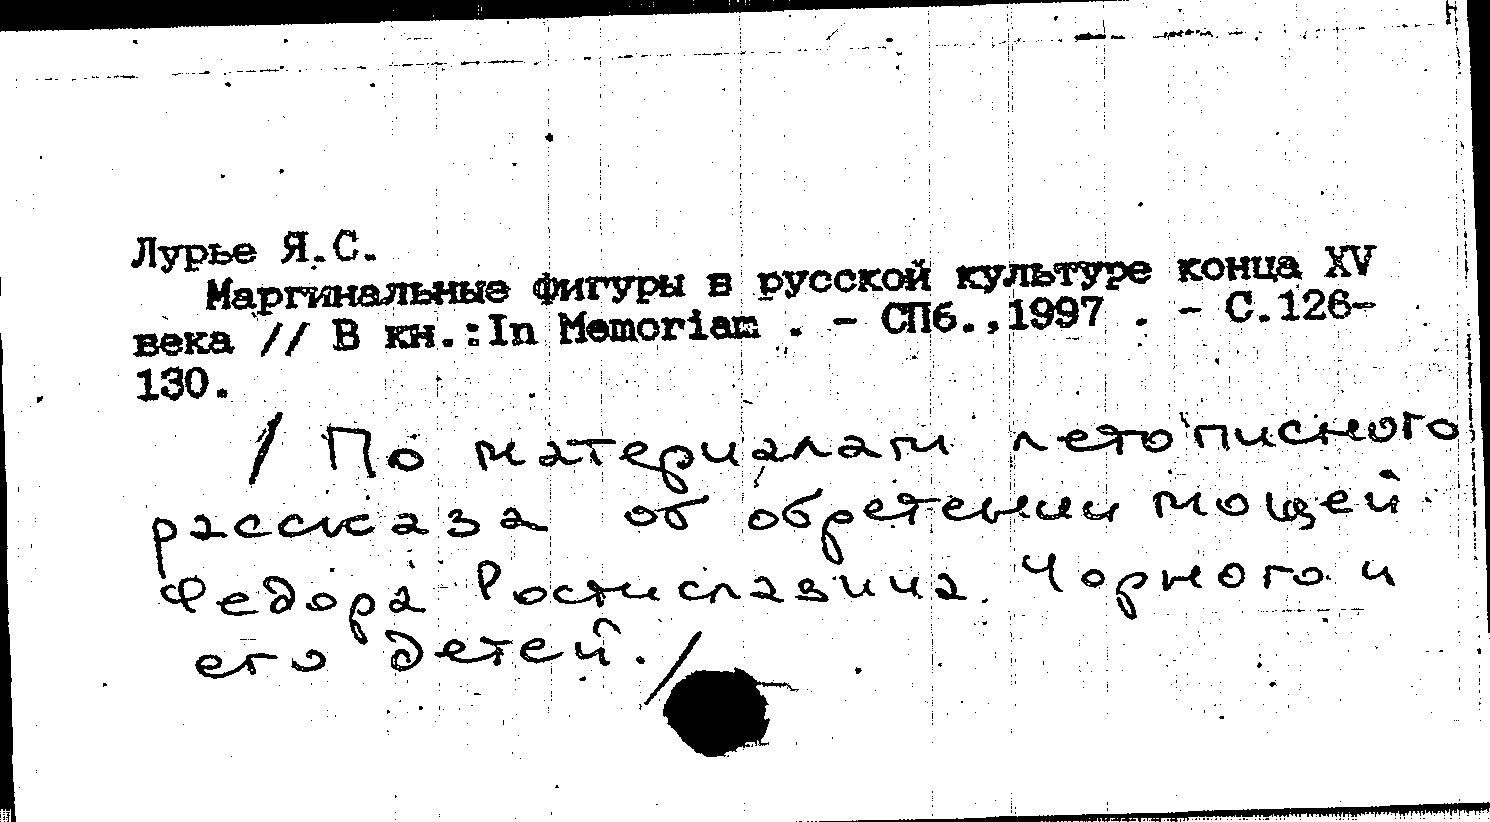 Лурье Я.С.
Маргинальные фигуры в русской культуре конца XV
века // В кн.:In Memoriam . - СПб.,1997 . - С.126-
130.
/ По материалам летописного
рассказа об обретении мощей
Федора Ростиславича Чорного и
его детей./